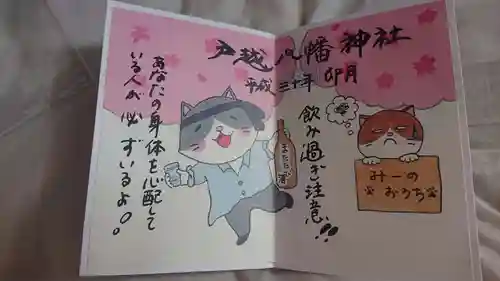 戸越八幡神社
平成三十年 卯月
飲み過ぎ注意!!
あなたの身体を心配して
いる人が必ずいるよ。
またたび酒
みーの
おうち